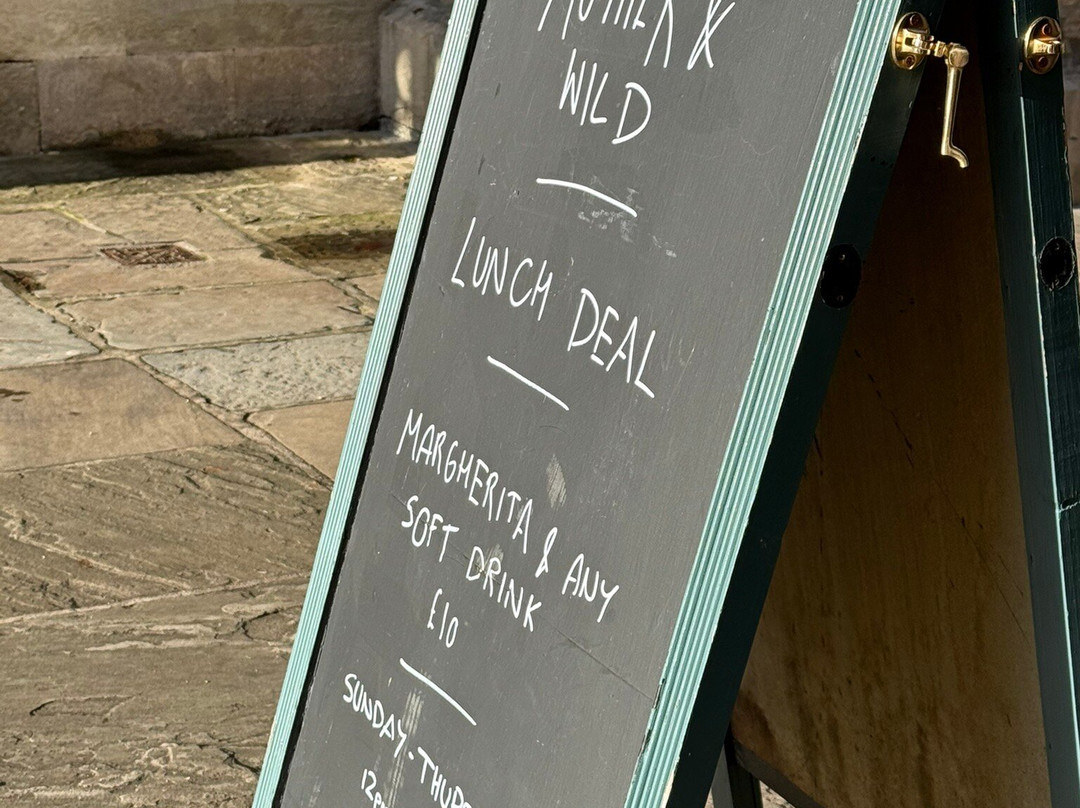 MOTHER &
WILD
LUNCH DEAL
MARGHERITA & ANY
SOFT DRINK
£10
SUNDAY-THURS